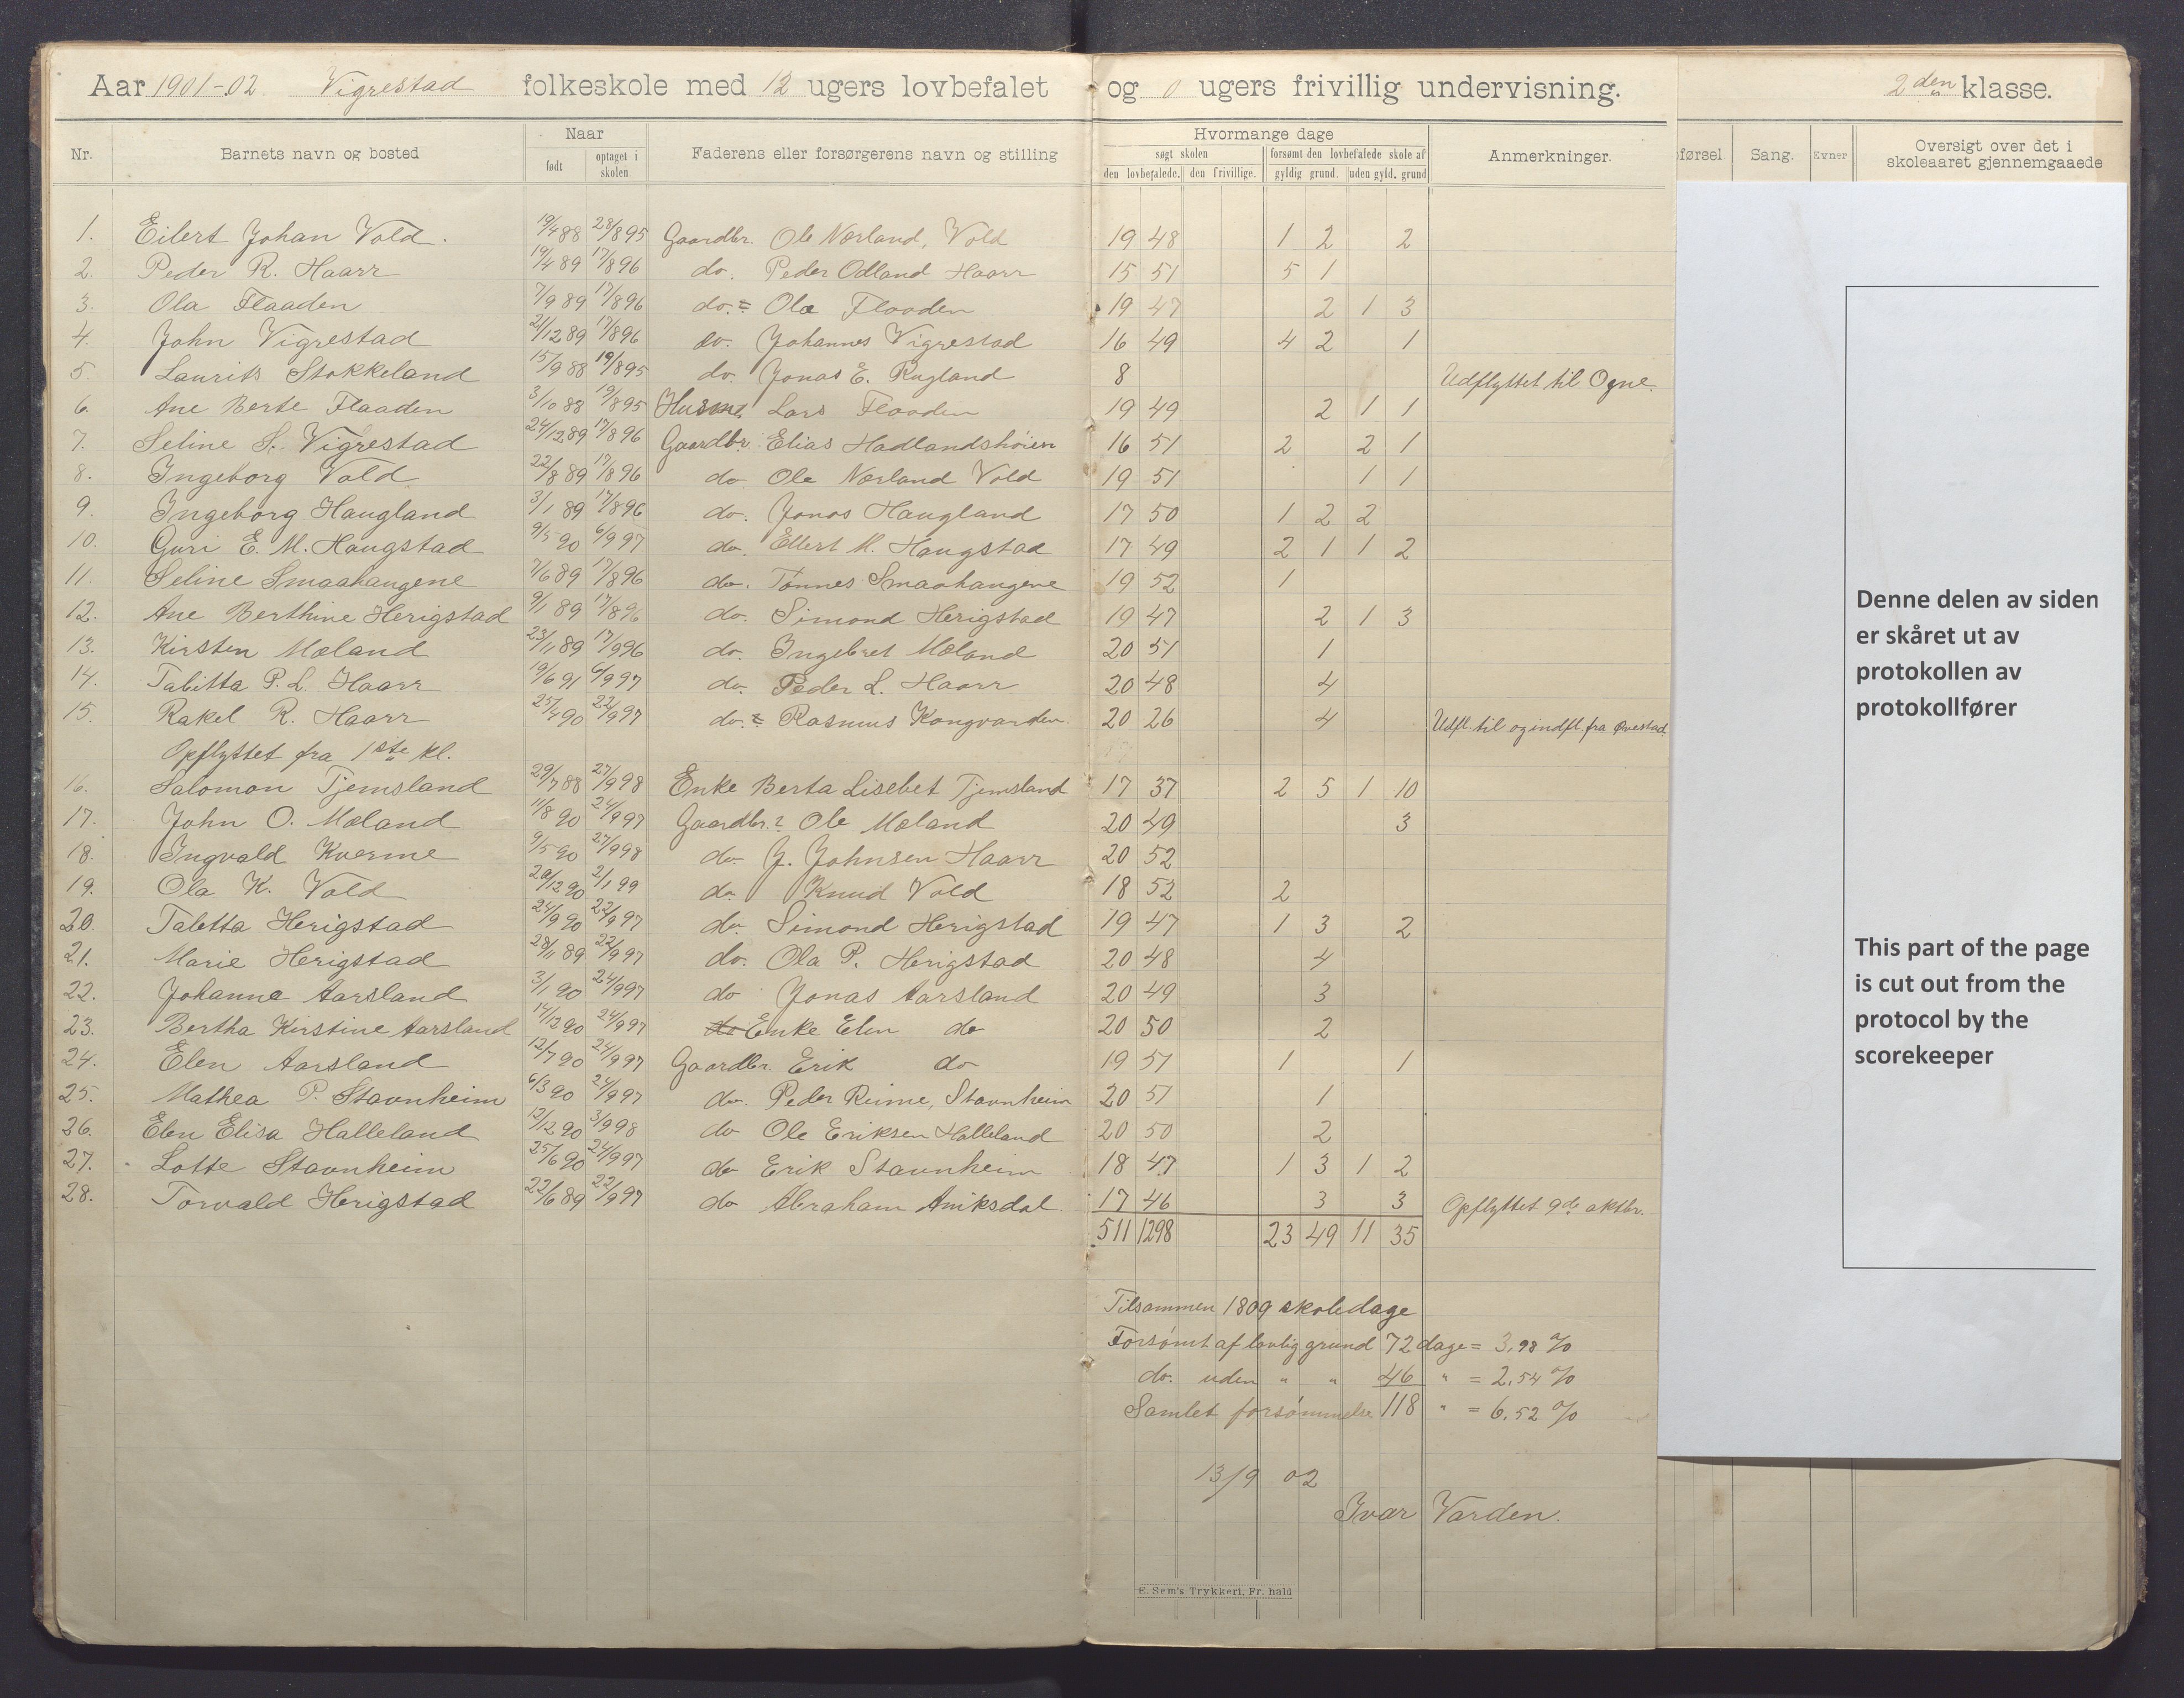 Aar 1901-02. Vigrestad folkeskole med 12 ugers lovbefalet og 0 ugers frivillig undervisning. 2den klasse.
Nr. Barnets navn og bosted Naar født optaget i skolen Faderens eller forsørgerens navn og stilling Hvormange dage søgt skolen den lovbefalede. den frivillige. forsømt den lovbefalede skole af gyldig grund. uden gyld. grund Anmerkninger. førsel Sang. Evner Oversigt over det i skoleaaret gjennemgaaede
1. Eilert Johan Vold. 19/4 88 28/8 95 Gaardbr. Ole Nærland, Vold 19 48 1 2 2
2. Peder R. Haarr 19/4 89 17/8 96 do. Peder Odland Haarr 15 51 5 1
3. Ola Flaaden 7/9 89 17/8 96 do. Ola Flaaden 19 47 2 1 3
4. John Vigrestad 21/12 89 17/8 96 do. Johannes Vigrestad 16 49 4 2 1
5. Laurits Stokkeland 15/9 88 19/8 95 do. Jonas E. Rugland 8 Udflyttet til Ogne.
6. Ane Berte Flaaden 3/10 88 19/8 95 Husm. Lars Flaaden 19 49 2 1 1
7. Seline S. Vigrestad 24/12 89 17/8 96 Gaardbr. Elias Hadlandshøien 16 51 2 2 1
8. Ingeborg Vold 22/8 89 17/8 96 do. Ole Nærland Vold 19 51 1 1
9. Ingeborg Haugland 3/1 89 17/8 96 do. Jonas Haugland 17 50 1 2 2
10. Guri E. M. Haugstad 9/3 90 6/9 97 do. Ellert M. Haugstad 17 49 2 1 1 2
11. Seline Smaahaugene 7/6 89 17/8 96 do. Tønnes Smaahaugene 19 52 1
12. Ane Berthine Herigstad 9/1 89 17/8 96 do. Simond Herigstad 19 47 2 1 3
13. Kirsten Mæland 23/11 89 17/9 96 do. Ingebret Mæland 20 51 1
14. Tabitta P. L. Haarr 19/6 91 6/9 97 do. Peder L. Haarr 20 48 4
15. Rakel R. Haarr 25/4 90 22/9 97 do. Rasmus Kongvarden. 20 26 4 Udfl. til og indfl. fra Øvestad.
Opflyttet fra 1ste kl.
16. Salomon Tjemsland 29/7 88 27/9 98 Enke Berta Lisebet Tjemsland 17 37 2 5 1 10
17. John O. Mæland 11/8 90 24/9 97 Gaardbr. Ole Mæland 20 49 3
18. Ingvald Kverme 9/5 90 27/9 98 do. J. Johnsen Haarr 20 52
19. Ola K. Vold 20/12 90 2/1 99 do. Knud Vold 18 52 2
20. Tabetta Herigstad 24/9 90 22/9 97 do. Simond Herigstad 19 47 1 3 2
21. Marie Herigstad 28/11 89 22/9 97 do. Ola P. Herigstad 20 48 4
22. Johanne Aarsland 3/1 90 24/9 97 do Jonas Aarsland 20 49 3
23. Bertha Kirstine Aarsland 14/12 90 24/9 97 do Enke Elen do 20 50 2
24. Elen Aarsland 12/7 90 24/9 97 Gaardbr. Erik do 19 51 1 1
25. Mathea P. Stavnheim 6/3 90 24/9 97 do. Peder Reime, Stavnheim 20 51 1
26. Elen Elisa Halleland 12/12 90 3/9 98 do Ole Eriksen Halleland 20 50 2
27. Lotte Stavnheim 25/6 90 24/9 97 do Erik Stavnheim 18 47 1 3 1 2
28. Torvald Herigstad 22/6 89 22/9 97 do Abraham Aniksdal. 17 46 3 3 Opflyttet 9de oktbr.
511 1298 23 49 11 35
Tilsammen 1809 skoledage
Forsømt af lovlig grund 72 dage = 3,98 %
do. uden " " 46 " = 2,54 %
Samlet forsømmelse 118 " = 6,52 %
13/9 02
Ivar Varden.
E. Sem's Trykkeri, Fr.hald
Denne delen av siden
er skåret ut av
protokollen av
protokollfører
This part of the page
is cut out from the
protocol by the
scorekeeper